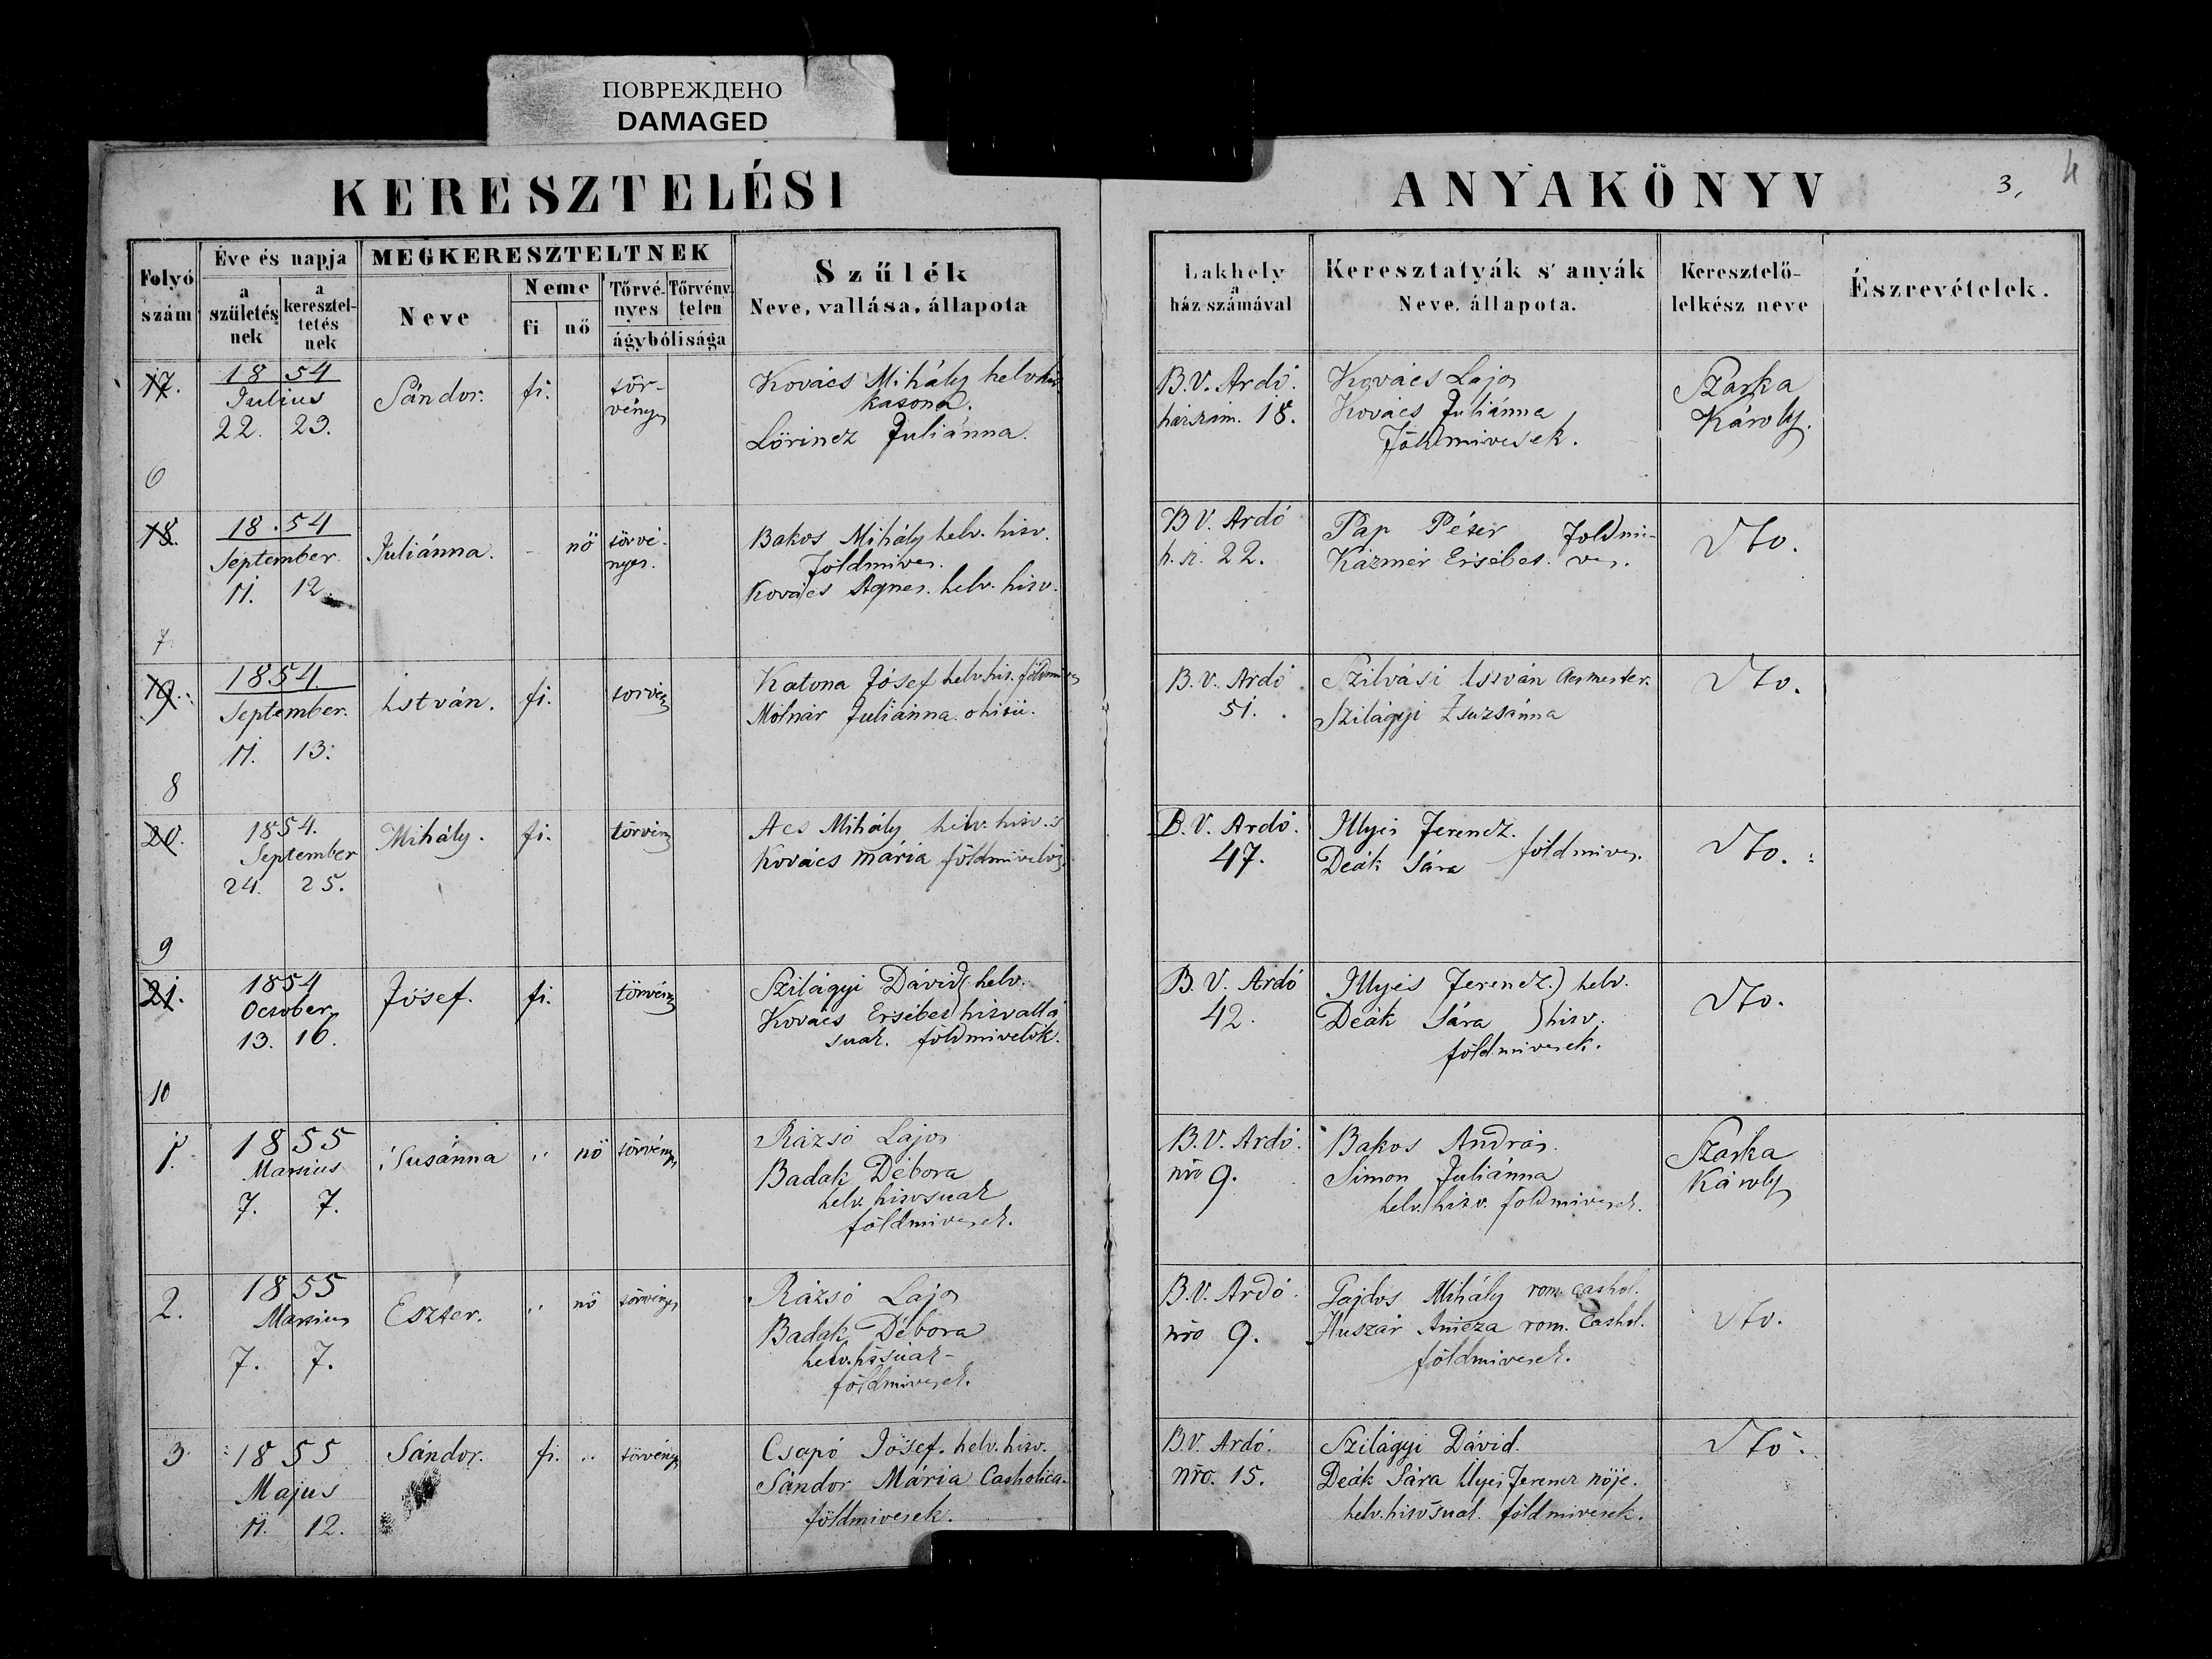 ПОВРЕЖДЕНО
DAMAGED
KERESZTELÉSI
ANYAKÖNYV
3,
4
Folyó szám
Éve és napja
a születésnek
a kereszteltetésnek
MEGKERESZTELTNEK
Neve
Neme
fi
nő
Törvényes
Törvénytelen
ágybólisága
Szülék
Neve, vallása, állapota
Lakhely
a
ház számával
Keresztatyák s' anyák
Neve, állapota.
Keresztelő-
lelkész neve
Észrevételek.
17.
6
1854
Julius
22. 23.
Sándor.
fi.
tör-
vényes
Kovács Mihály helv. hiv.
katona.
Lörincz Juliánna.
B.V. Ardó.
házszám. 18.
Kovács Lajos
Kovács Juliánna
Földmivesek.
Szarka
Károly.
18.
7
18.54
September
11. 12.
Juliánna.
nö
törvé-
nyes.
Bakos Mihály helv. hitv.
Földmives.
Kovács Agnes. helv. hitv.
B V. Ardó
h. sz. 22.
Pap Péter földmi-
Kázmér Ersébet. ves.
Dto.
19.
8
1854.
September.
11. 13.
István.
fi.
törvény
Katona Jósef helv. hit. földmives
Molnár Juliánna. o hitü.
B. V. Ardó
51.
Szilvási István
Szilágyi Zsuzsánna
Dto.
20.
9
1854.
September
24. 25.
Mihály.
fi.
törvény
Acs Mihály helv. hitv. s
Kovács Mária földmivelö
B. V. Ardó.
47.
Illyés Ferencz.
Deák Sára földmives.
Dto.
21.
10
1854
October
13. 16.
Jósef.
fi.
törvény
Szilágyi Dávid helv.
Kovács Ersébet hitvallá
suak. földmivelök.
B. V. Ardó
42.
Illyés Ferencz.) helv.
Deák Sára ) hitv.
földmivesek.
Dto.
1.
1855
Martius
7. 7.
Susánna
nö
törvényes
Rázsó Lajos
Badak Débora
helv. hitvsuak
földmivesek.
B. V. Ardó.
nro 9.
Bakos András.
Simon Juliánna
helv. hitv. földmivesek.
Szarka
Károly
2.
1855
Martius
7. 7.
Eszter.
nö
törvényes
Rázsó Lajos
Badak Débora
helv. hitsuak
földmivesek.
B.V. Ardó.
nro 9.
Gajdos Mihály rom. cathol.
Huszár rom. Cathol.
földmivesek.
Dto.
3.
1855
Majus
11. 12.
Sándor.
fi.
törvényes
Csapó Jósef. helv. hitv.
Sándor Mária Catholica.
földmivesek.
B.V. Ardó.
nro. 15.
Szilágyi Dávid.
Deák Sára Illyés Ferencz nöje.
helv. hitvsuak földmivesek.
Dto.